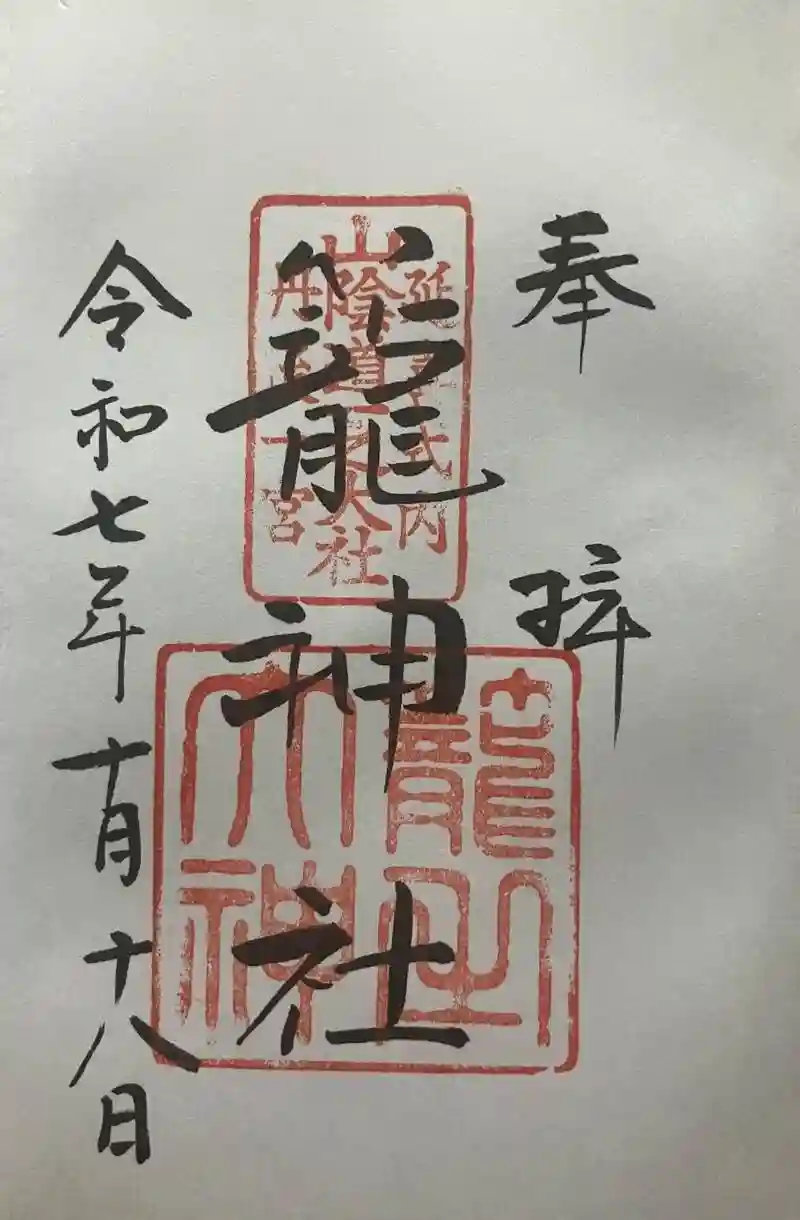 奉拝
延喜式内
山陰道一之大社
丹後一宮
籠神社
令和七年十月十八日